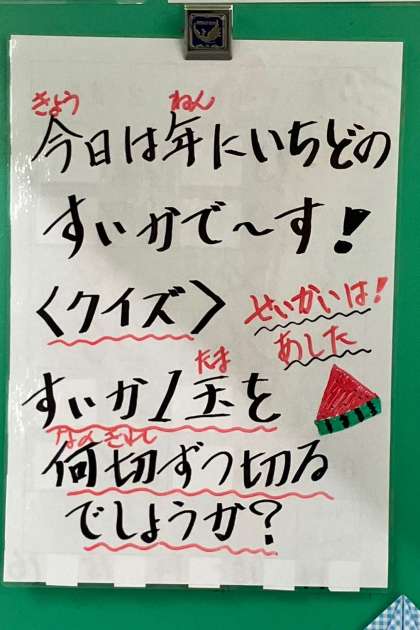 きょう ねん
今日は年にいちどの
すいかで〜す！
〈クイズ〉
せいかいは！
あした
たま
すいか1玉を
なんぎれ
何切ずつ切る
でしょうか？